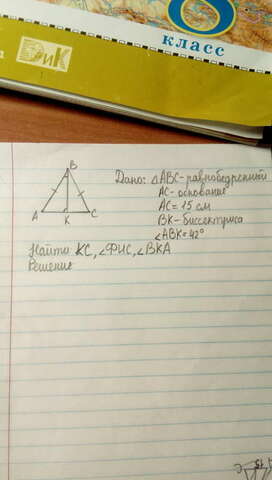 8
класс
ДиК
B
A
K
C
Дано: △ABC-равнобедренный
AC-основание
AC=15 см
BK-биссектриса
∠ABK=42°
Найти KC, ∠ФИС, ∠BKA
Решение